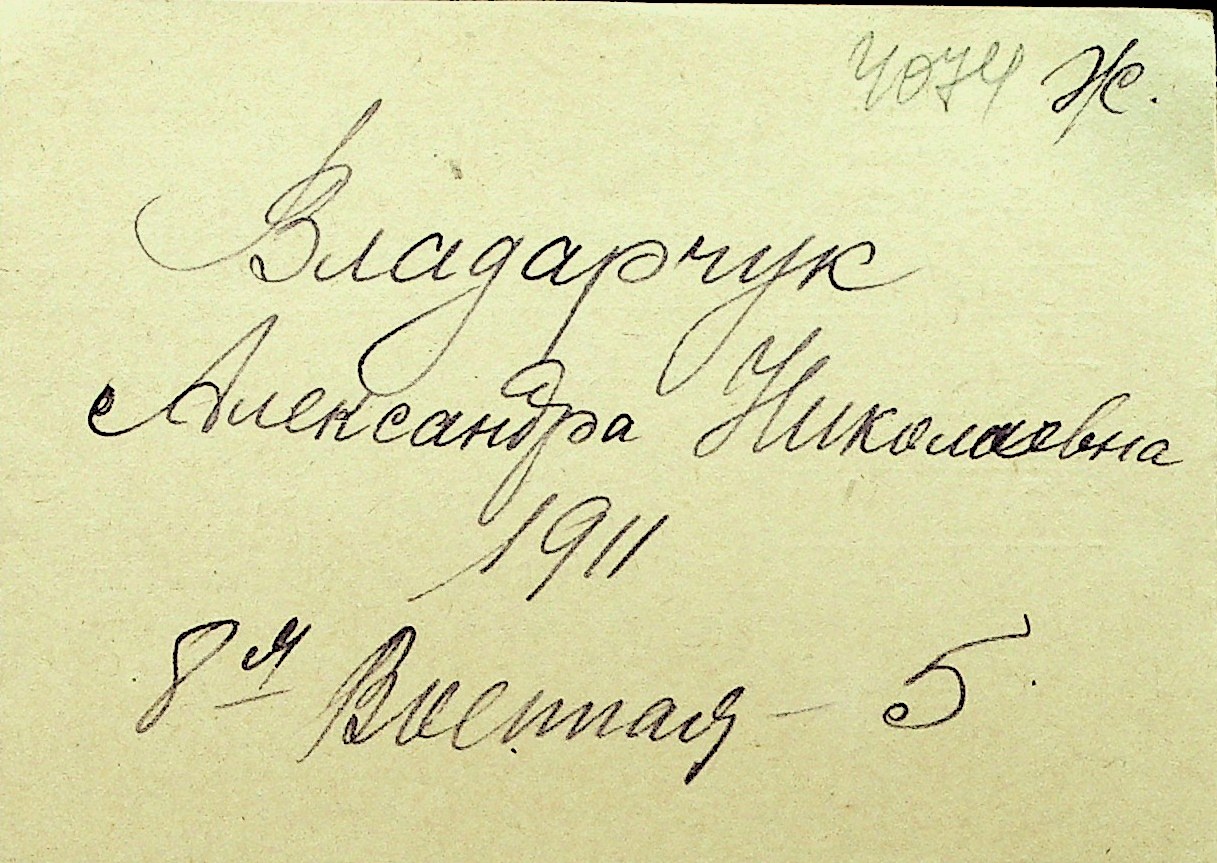 4074 Ж.
Владарчук
Александра Николаевна
1911
8я Военная – 5.